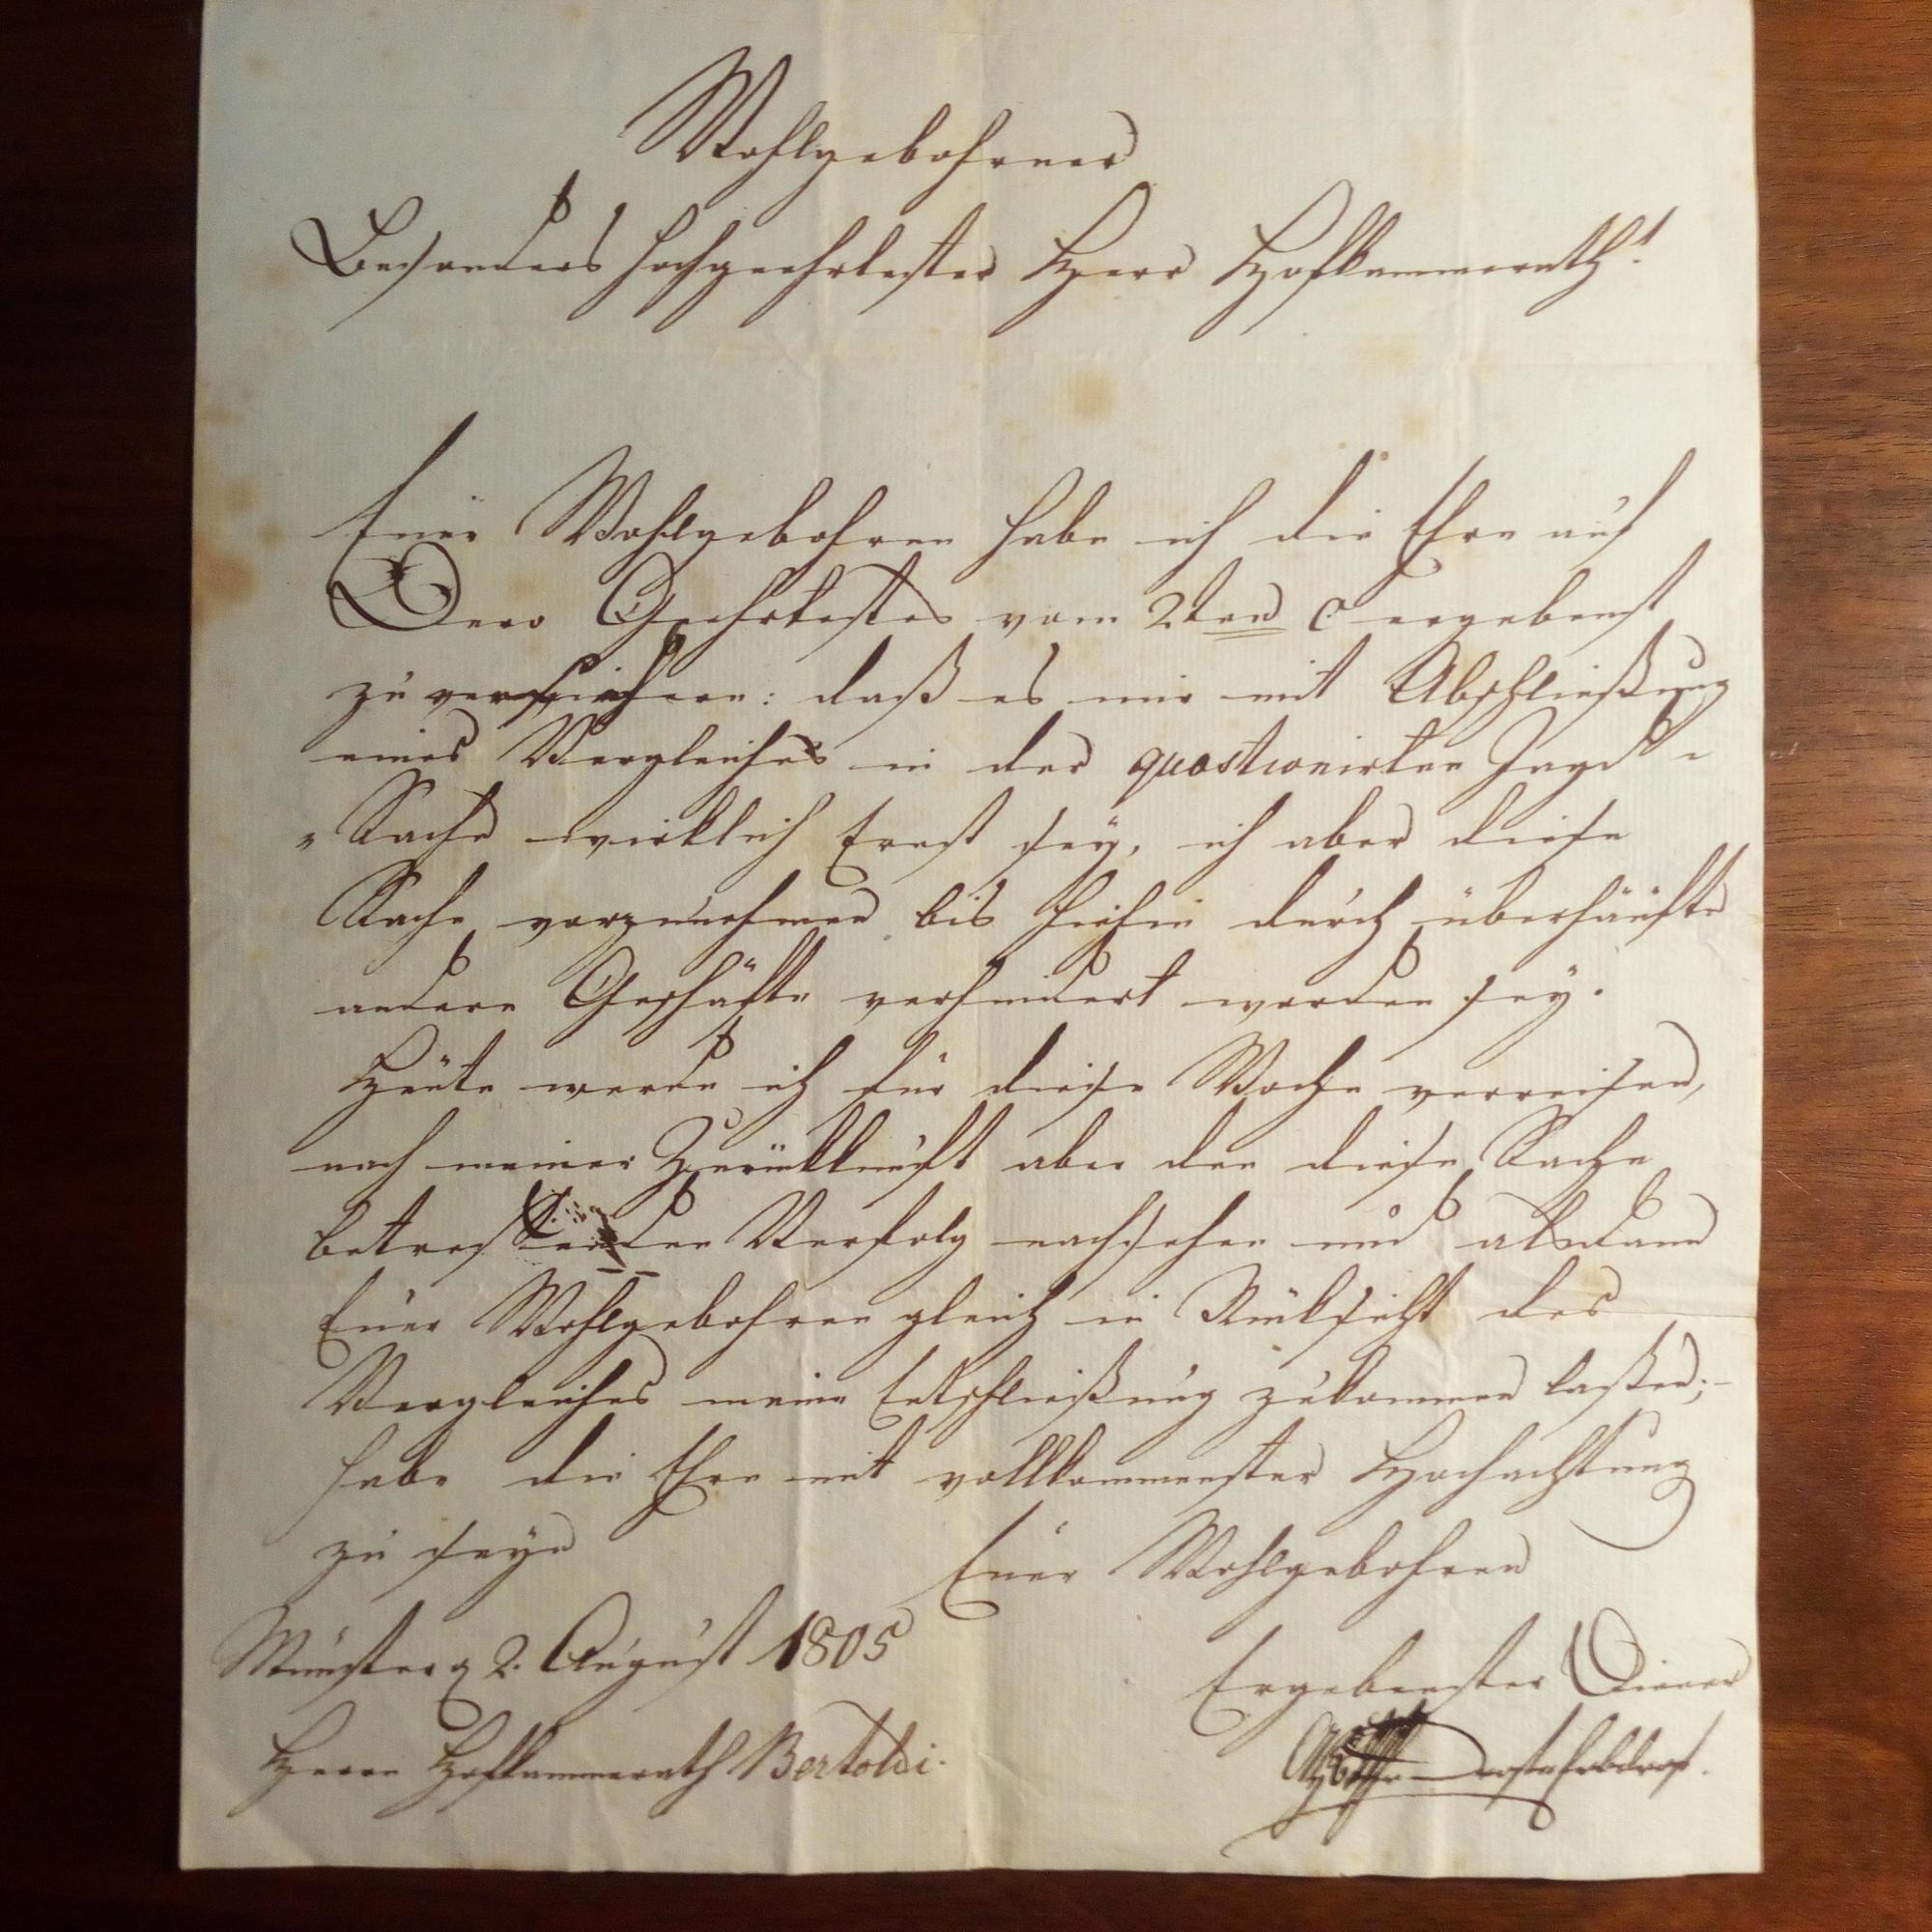 Wohlgebohrner
Besonders hochgeehrtester Herr Hofkammerrath!
Euer Wohlgebohren habe ich die Ehre auf
Dero Geehrtestes vom 2ten c. ergebenst
zu versicheren: daß es mir mit Abschließung
eines Vergleiches in der quaestionirten Jagd=
=Sache wirklich Ernst sey, ich aber diese
Sache vorzunehmen bis hiehin durch überhäufte
andere Geschäfte verhindert worden sey.
Heute werde ich für diese Woche verreisen,
nach meiner Zurückkunft aber den diese Sache
betreffenden Verfolg nachsehen und alsdann
Euer Wohlgebohren gleich in Rücksicht des
Vergleiches meine Entschließung zukommen laßen;–
habe die Ehre mit vollkommenster Hochachtung
zu seyn
Euer Wohlgebohren
Münster 2. August 1805
Ergebenster Diener
Herrn Hofkammerrath Bertoldi.
Droste Erbdrost.